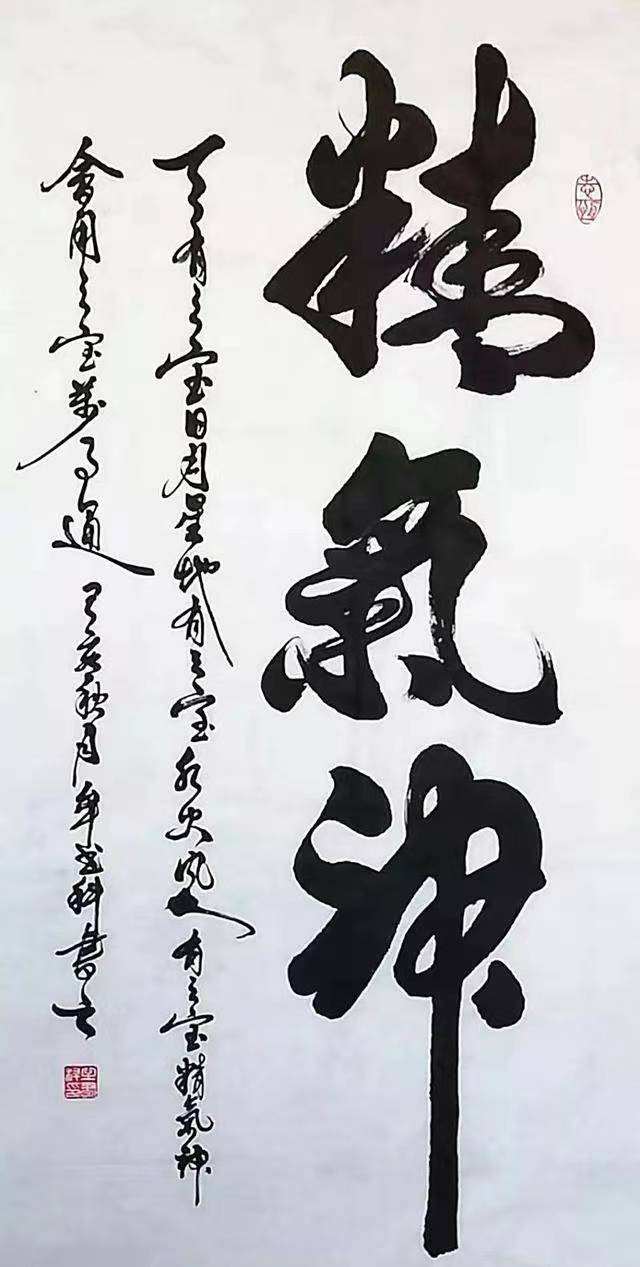 精氣神
天有三宝日月星地有三宝水火风人有三宝精氣神
會用三宝萬事通 己亥秋月牟科書